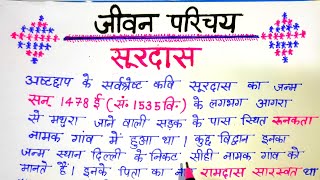 जीवन परिचय
सूरदास
अष्टछाप के सर्वश्रेष्ठ कवि सूरदास का जन्म
सन् 1478 ई (सं. 1535 वि.) के लगभग आगरा
से मथुरा जाने वाली सड़क के पास स्थित रुनकता
नामक गांव में हुआ था। कुछ विद्वान इनका
जन्म स्थान दिल्ली के निकट सीही नामक गांव को
मानते हैं। इनके पिता का नाम रामदास सारस्वत था